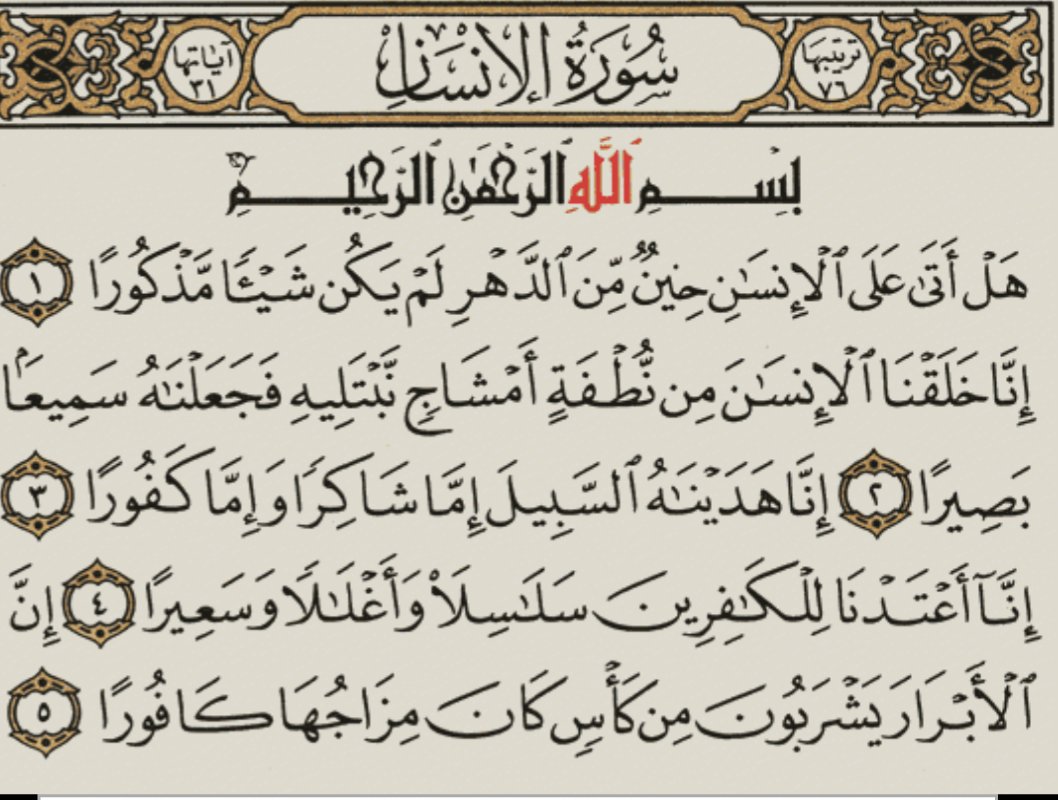 ترتيبها ٧٦
سُورَةُ الإِنسَان
آياتها ٣١
بِسْمِ ٱللَّهِ ٱلرَّحْمَٰنِ ٱلرَّحِيمِ
هَلْ أَتَىٰ عَلَى ٱلْإِنسَٰنِ حِينٌ مِّنَ ٱلدَّهْرِ لَمْ يَكُن شَيْـًٔا مَّذْكُورًا ١
إِنَّا خَلَقْنَا ٱلْإِنسَٰنَ مِن نُّطْفَةٍ أَمْشَاجٍ نَّبْتَلِيهِ فَجَعَلْنَٰهُ سَمِيعًۢا
بَصِيرًا ٢ إِنَّا هَدَيْنَٰهُ ٱلسَّبِيلَ إِمَّا شَاكِرًا وَإِمَّا كَفُورًا ٣
إِنَّآ أَعْتَدْنَا لِلْكَٰفِرِينَ سَلَٰسِلَا۟ وَأَغْلَٰلًا وَسَعِيرًا ٤ إِنَّ
ٱلْأَبْرَارَ يَشْرَبُونَ مِن كَأْسٍ كَانَ مِزَاجُهَا كَافُورًا ٥